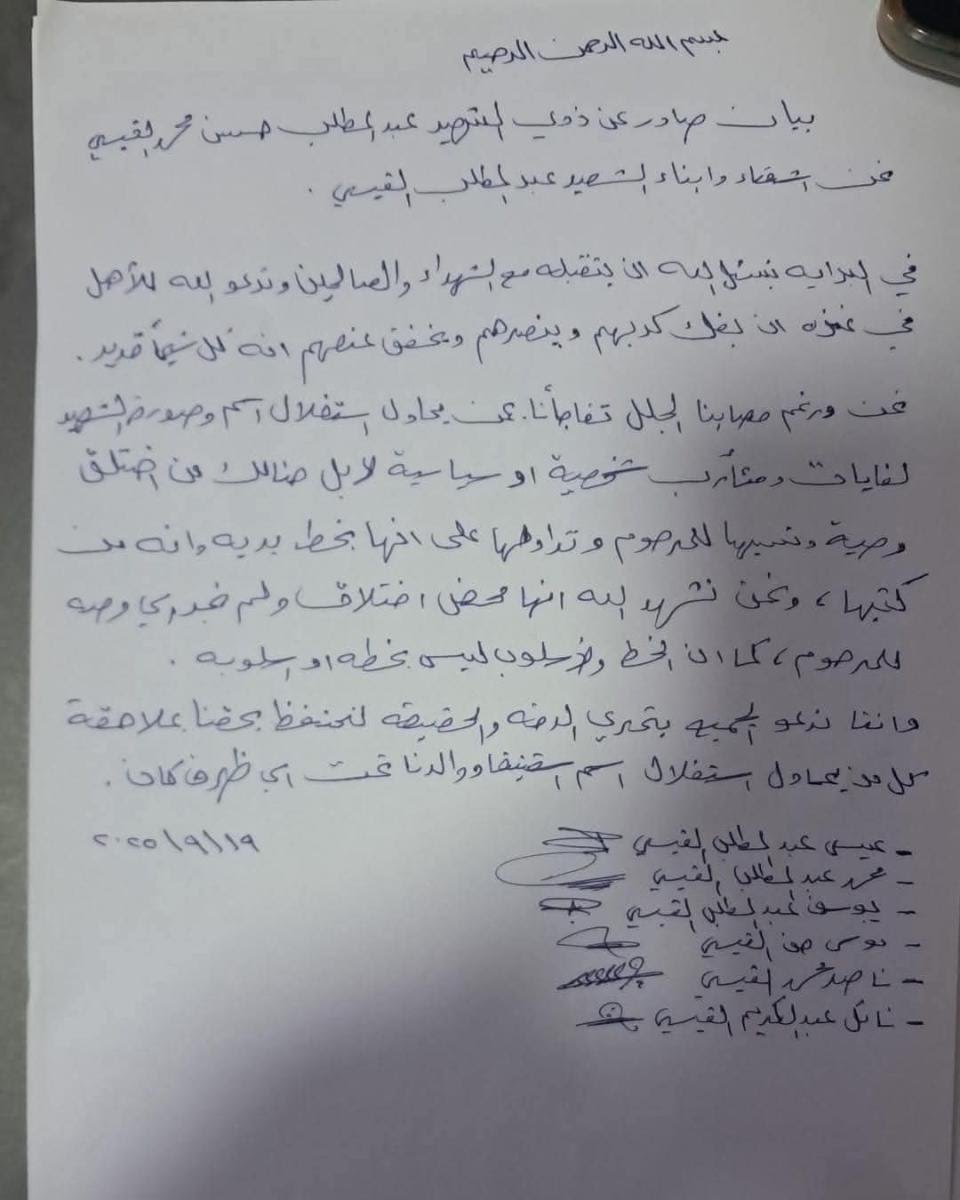 بسم الله الرحمن الرحيم
بيان صادر عن ذوي الشهيد عبد المطلب حسن محمد القيسي
نحن اشقاء وابناء الشهيد عبد المطلب القيسي .
في البدايه نسئل الله ان يتقبله مع الشهداء والصالحين وندعو الله للأهل
في غزه ان يفك كربهم وينصرهم ويخفق عنهم انه كل شيئاً قدير .
نحن ورغم مصابنا الجلل تفاجأنا بمن يحاول استغلال اسم وصورة الشهيد
لغايات ومئأرب شخصية او سياسية لا بل هنالك من اختلق
وصية ونسبها للمرحوم وتداولها على انها بخط يديه وانه من
كتبها ، ونحن نشهد الله انها محض اختلاق ولم نجد اي وصيه
للمرحوم ، كما ان الخط والأسلوب ليس بخطه او اسلوبه .
واننا ندعو الجميع بتحري الدقه والحقيقه لنحتفظ بحقنا بملاحقة
كل من يحاول استغلال اسم شقيقنا ووالدنا تحت اي ظرف كان .
٢٠٢٥/٩/١٩
- عيسى عبد المطلب القيسي
- محمد عبد المطلب القيسي
- يوسف عبد المطلب القيسي
- موسى حسن القيسي
- ناصر محمد القيسي
- نائل عبد الكريم القيسي